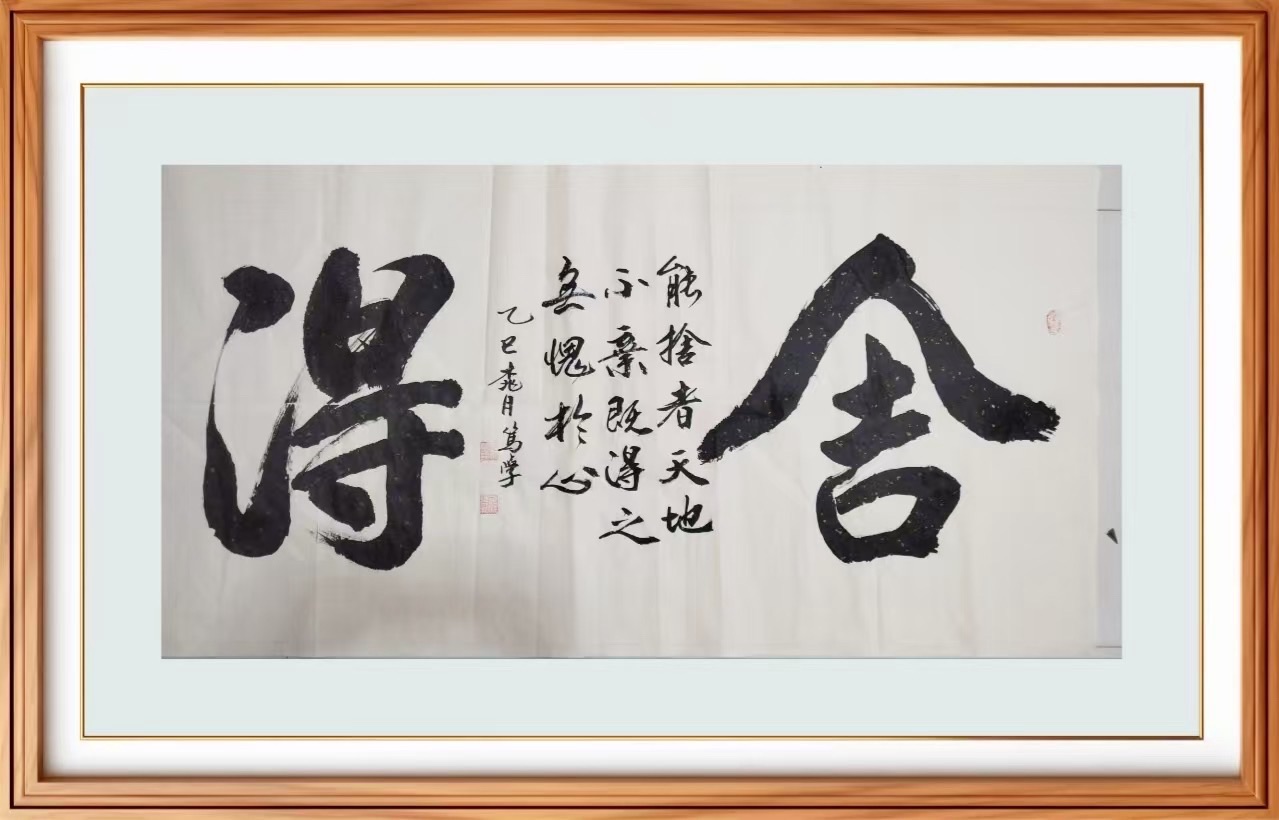 舍得
能捨者天地
不棄既得之
無愧於心
乙巳桃月篤學